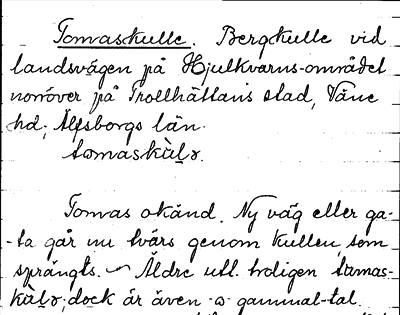 Tomaskulle. Bergkulle vid
landsvägen på Hjulkvarns-området
norröver på Trollhättans stad, Väne
hd; Älfsborgs län.
tomaskùlə.
Tomas okänd. Ny väg eller ga-
-ta går nu tvärs genom kullen, som
sprängts. — Äldre utt. troligen tamas-
kùlə; dock är även -o- gammal-tal.